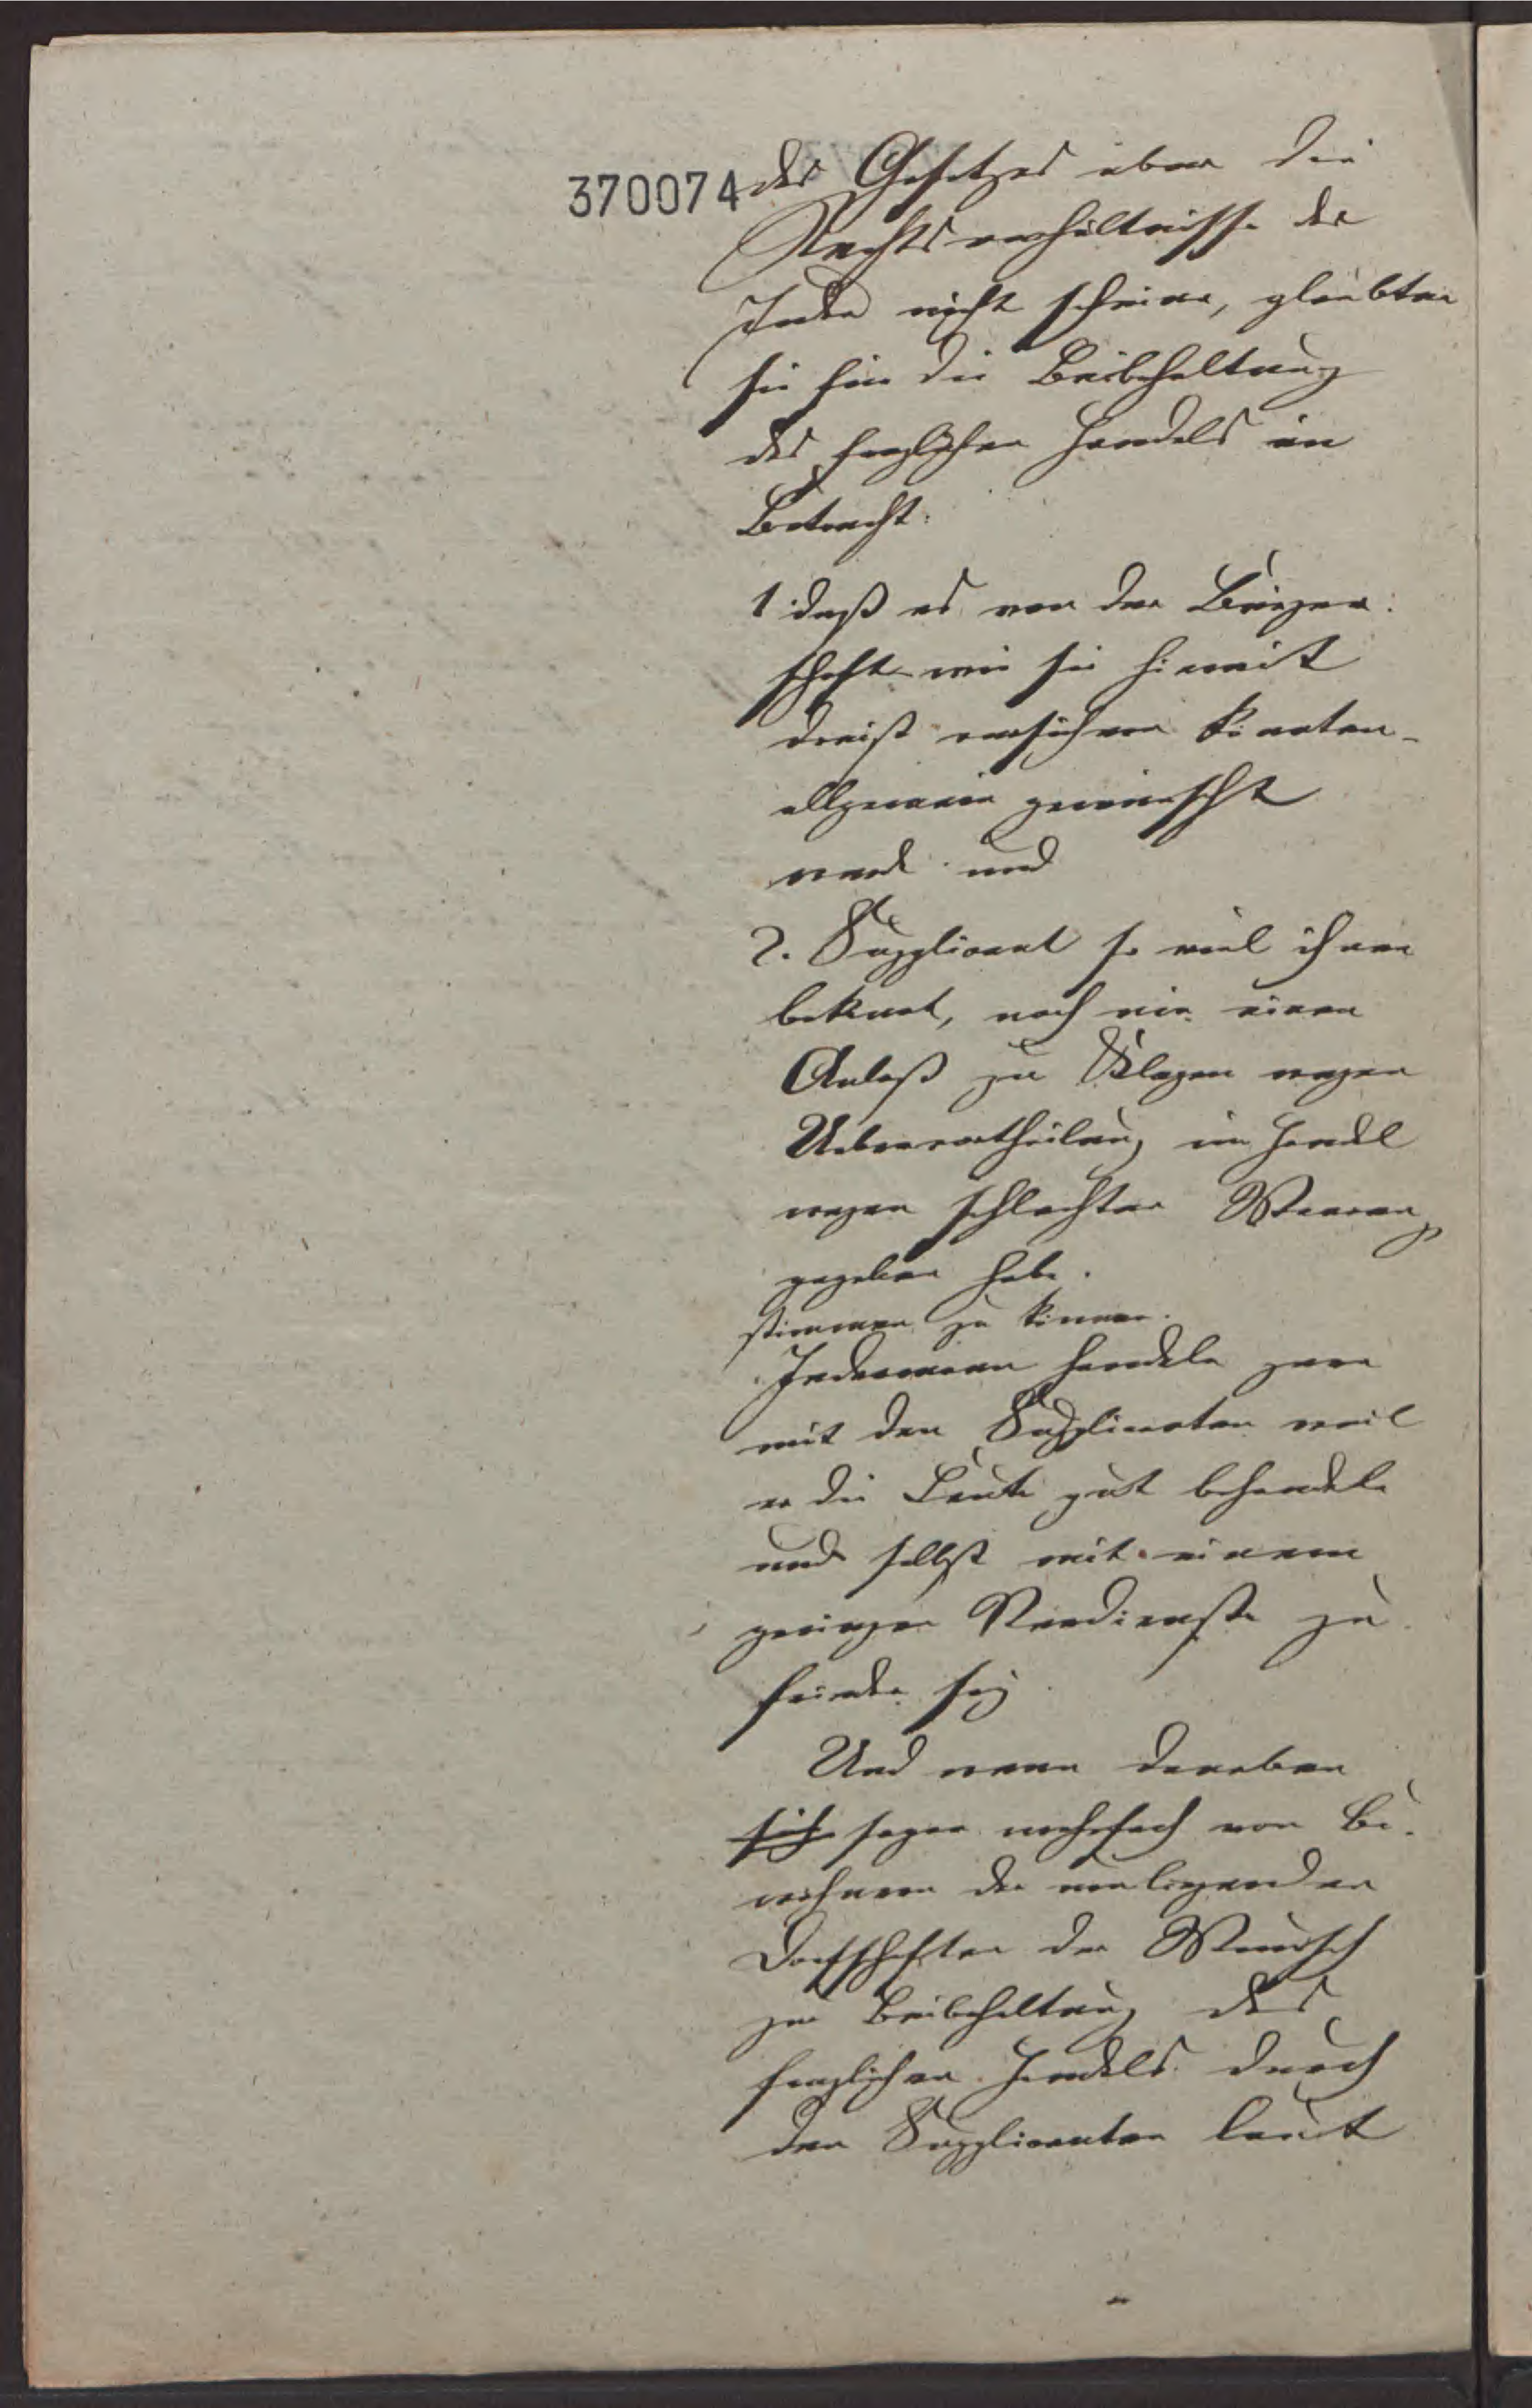 370074
des Gesetzes über die
Rechtsverhältnisse der
Juden nicht scheine, glaubten
sie für die Beibehaltung
des fraglichen Handels in
Betracht:
1. daß es von der Bürger:
schaft wie sie hiemit
dreist versichern könten
allgemein gewünscht
werde und
2. Supplicant so viel ihnen
bekant, noch nie einen
Anlaß zu Klagen wegen
Uebervortheilung im Handel
wegen schlechter Waaren
gegeben habe.
stimmen zu können.
Jedermann handele gern
mit den Supplicaten weil
er die Leute gut behandele
und selbst mit einem
geringen Verdienste zu
frieden sey.
Und wenn daneben
sich sogar mehrfach von Be-
wohnern der umliegenden
Dorfschaften der Wunsch
zur Beibehaltung des
fraglichen Handels durch
den Supplicanten laut